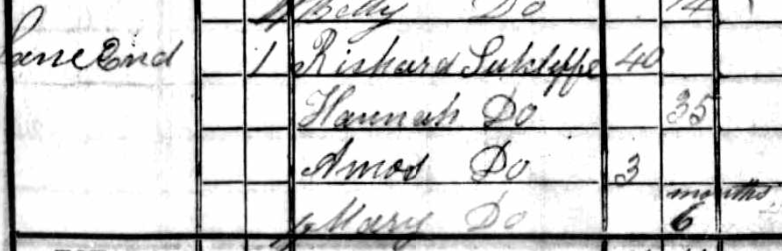 Betty Do 14
Lane End 1 Richard Sutcliffe 40
Hannah Do 35
Amos Do 3
months
Mary Do 6